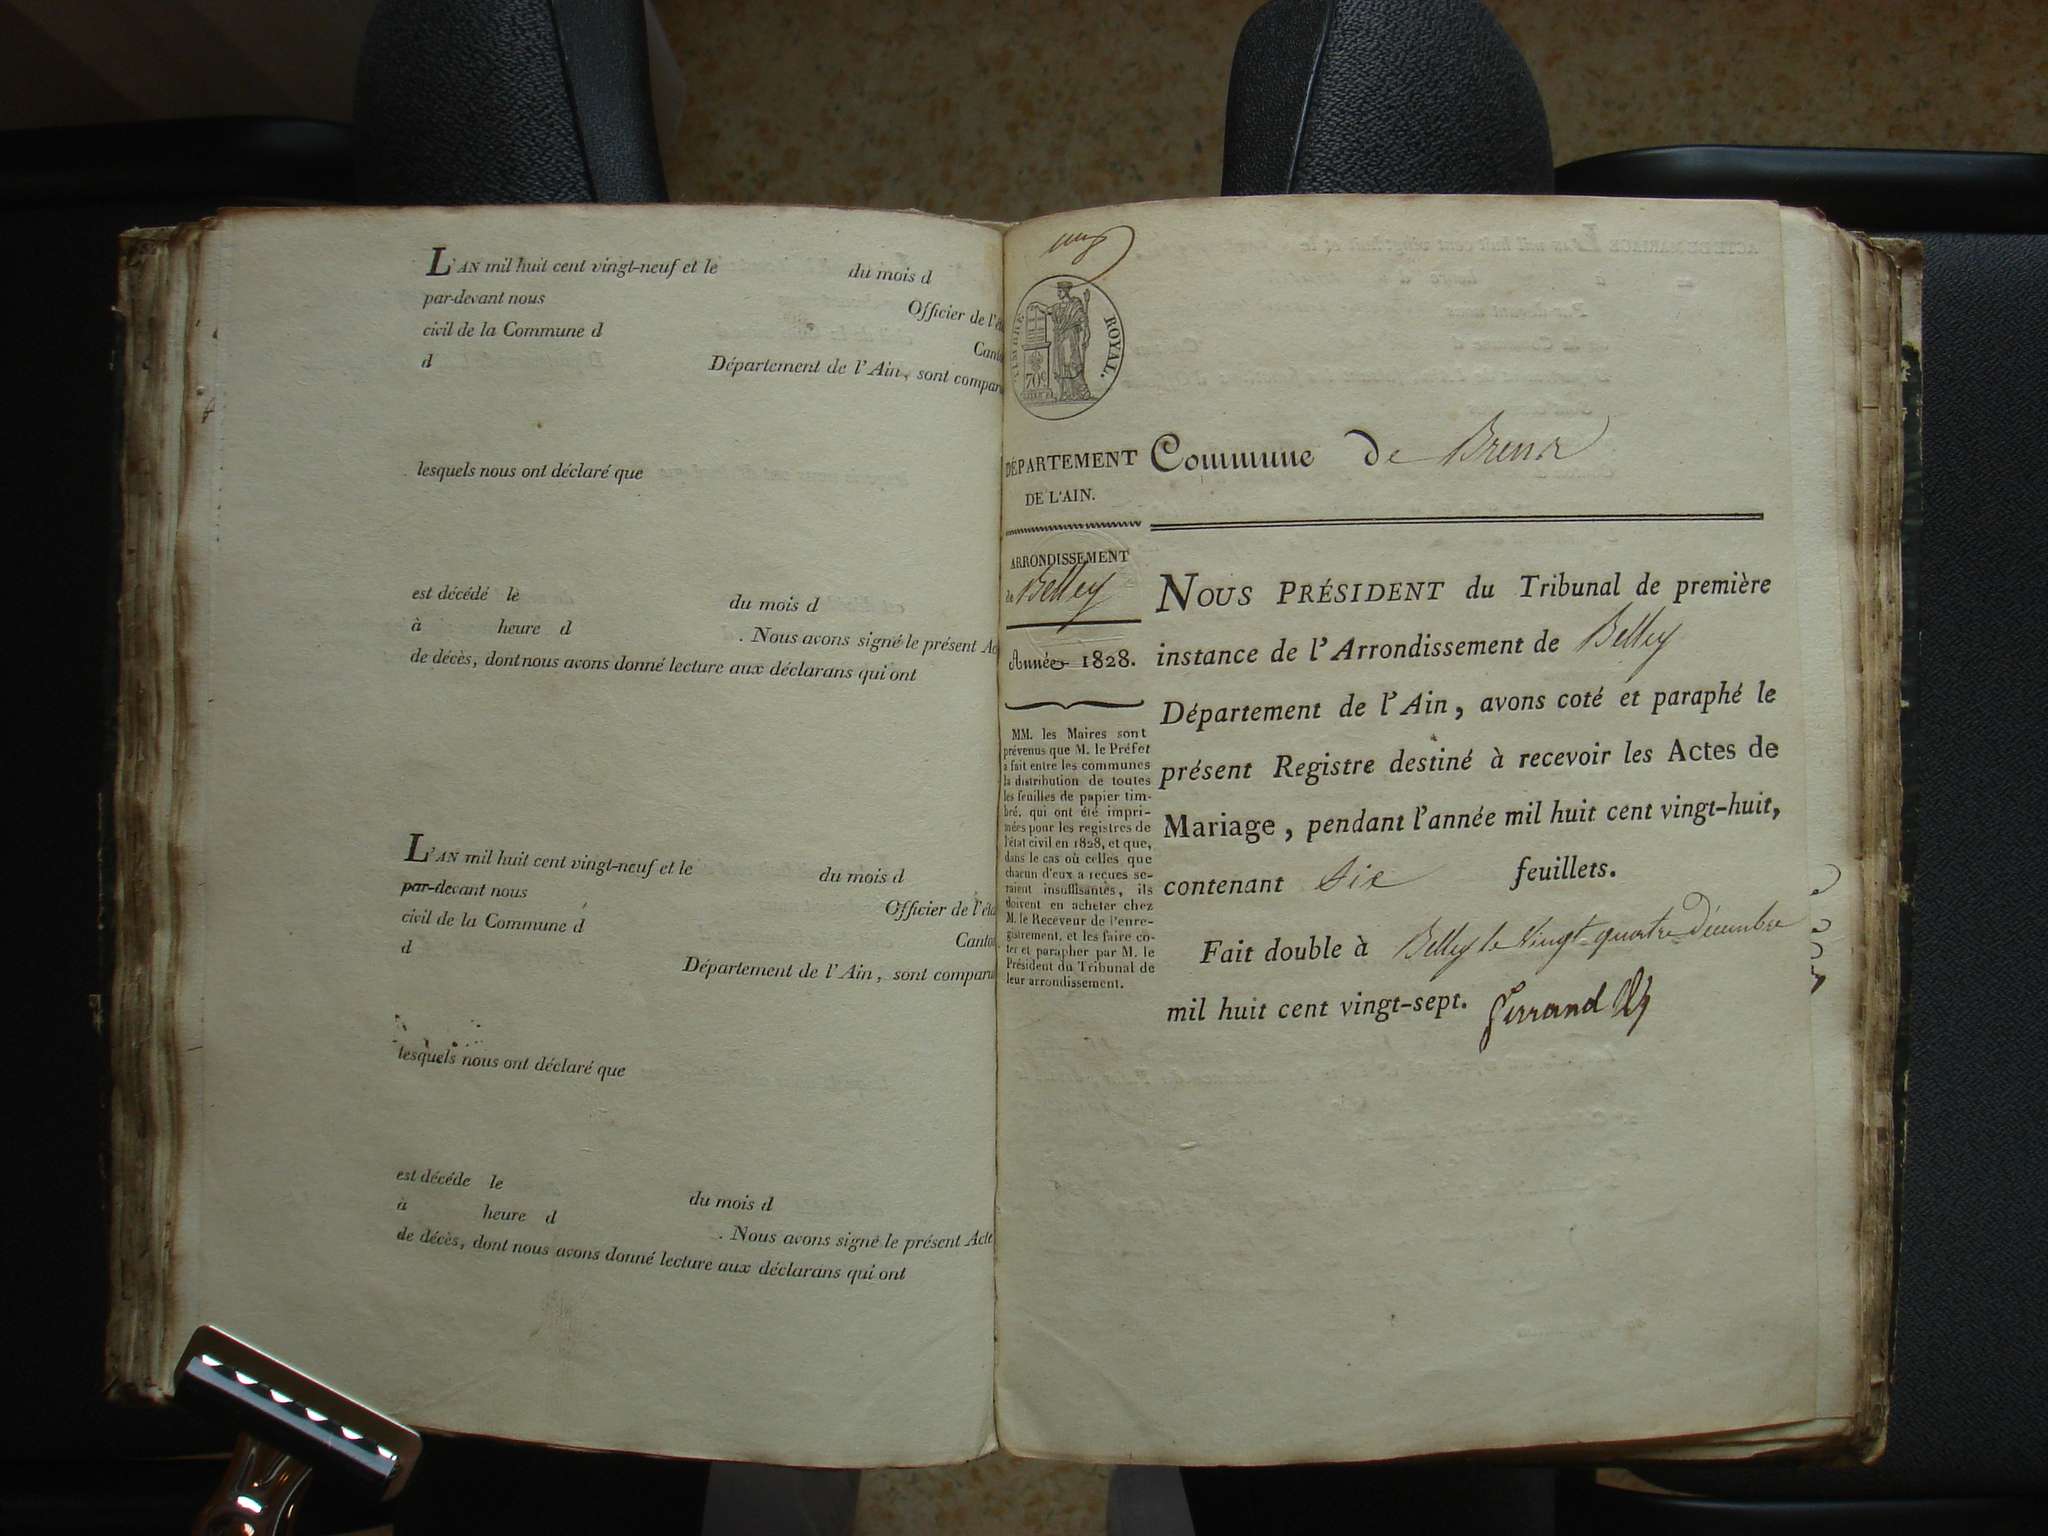 L'AN mil huit cent vingt-neuf et le du mois d
par-devant nous Officier de l'ét
civil de la Commune d Canto
d Département de l'Ain, sont compar
lesquels nous ont déclaré que
est décédé le du mois d
à heure d . Nous avons signé le présent Ac
de décès, dont nous avons donné lecture aux déclarans qui ont
L'AN mil huit cent vingt-neuf et le du mois d
par-devant nous Officier de l'éta
civil de la Commune d Canton
d Département de l'Ain, sont comparu
lesquels nous ont déclaré que
est décédé le du mois d
à heure d . Nous avons signé le présent Acte
de décès, dont nous avons donné lecture aux déclarans qui ont
TIMBRE ROYAL.
70c
DÉPARTEMENT
DE L'AIN.
ARRONDISSEMENT
de Belley
Année 1828.
MM. les Maires sont
prévenus que M. le Préfet
a fait entre les communes
la distribution de toutes
les feuilles de papier tim-
bré, qui ont été impri-
mées pour les registres de
l'état civil en 1828, et que,
dans le cas où celles que
chacun d'eux a reçues se-
raient insuffisantes, ils
doivent en acheter chez
M. le Receveur de l'enre-
gistrement, et les faire co-
ter et parapher par M. le
Président du Tribunal de
leur arrondissement.
Commune de Brenz
NOUS PRÉSIDENT du Tribunal de première
instance de l'Arrondissement de Belley
Département de l'Ain, avons coté et paraphé le
présent Registre destiné à recevoir les Actes de
Mariage, pendant l'année mil huit cent vingt-huit,
contenant Six feuillets.
Fait double à Belley le Vingt-quatre Décembre
mil huit cent vingt-sept. Ferrand